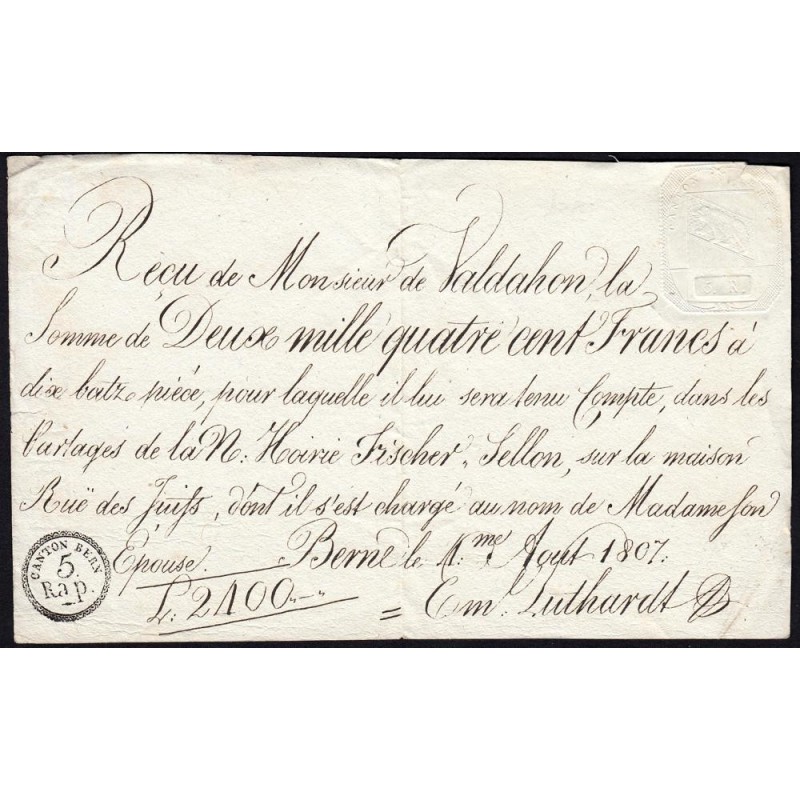 Reçu de Monsieur de Valdahon, la
Somme de Deux mille quatre cent Francs à
dix batz pièce, pour laquelle il lui sera tenu Compte, dans les
Partages de la N: Hoirie Fischer, Sellon, sur la maison
Ruë des Juifs, dont il s'est chargé au nom de Madame son
Epouse. Berne le 4.me Aout 1807.
L: 2400"—"
= Em. Luthardt
CANTON BERN
5
Rap.